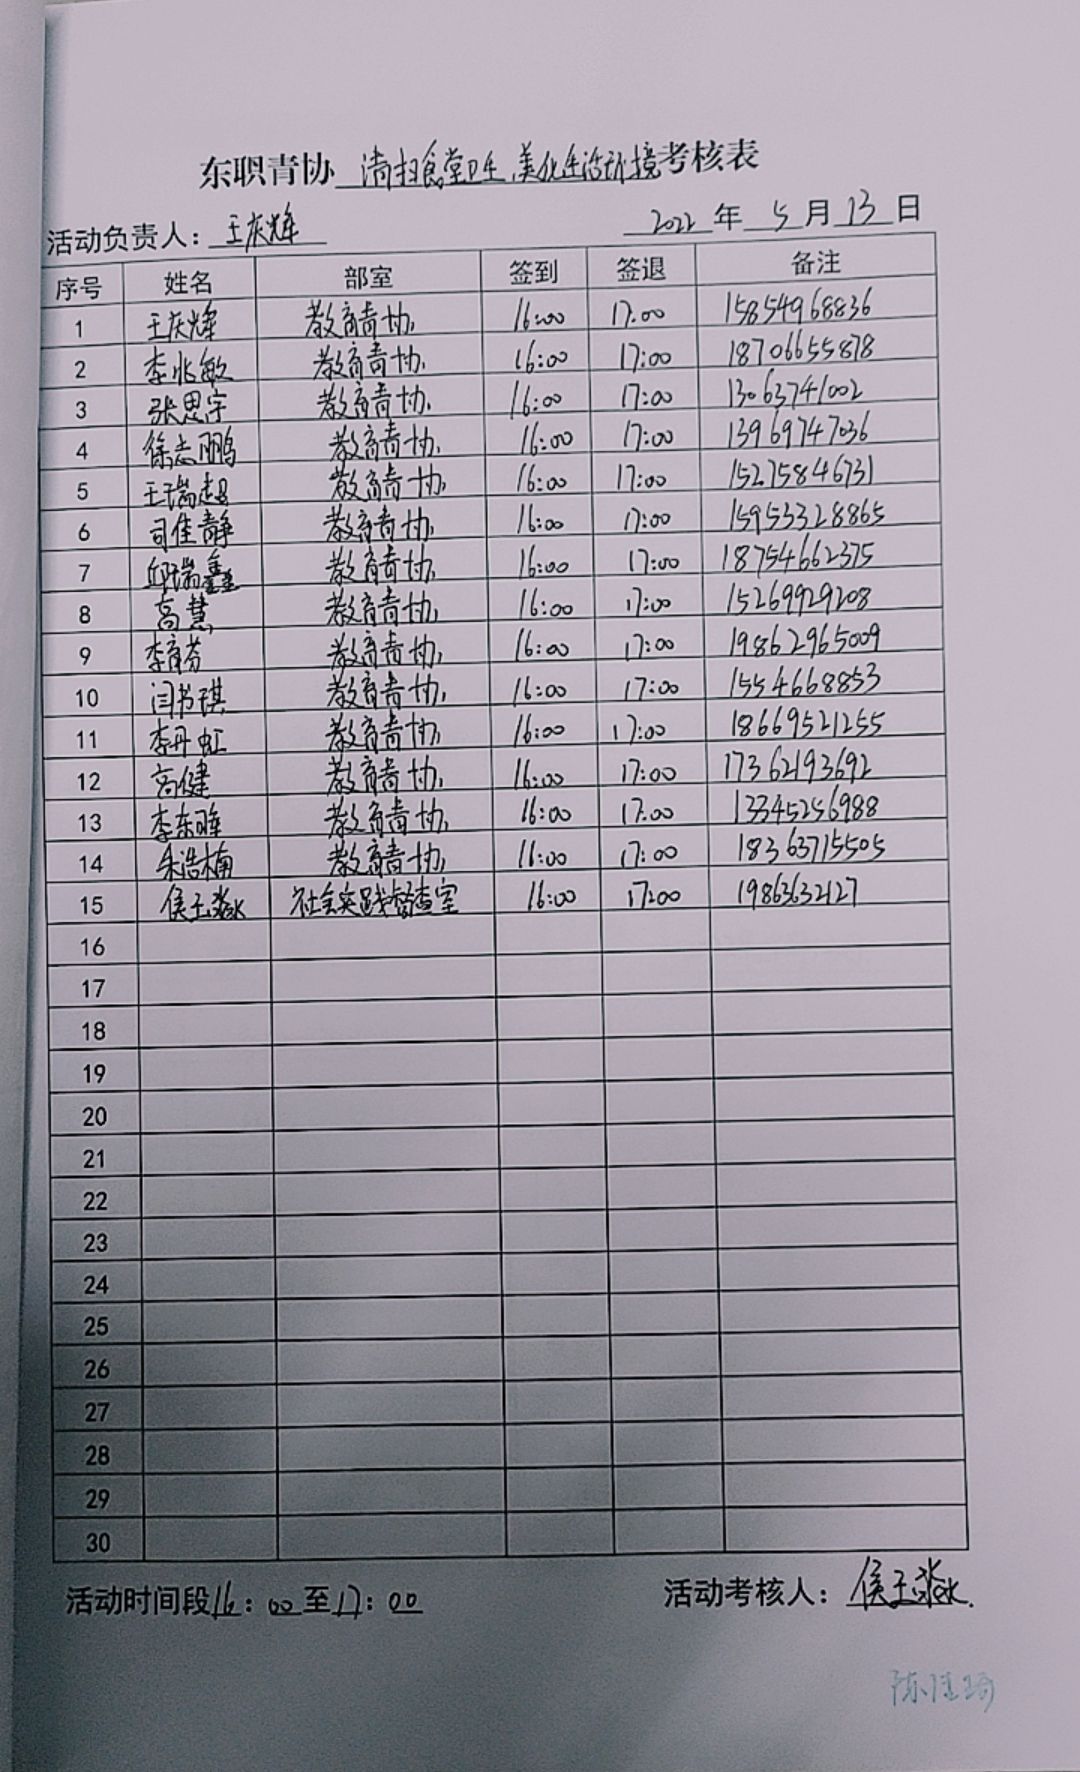 东职青协 清扫食堂卫生,美化生活环境考核表
活动负责人: 王庆辉 2022 年 5 月 13 日
序号 姓名 部室 签到 签退 备注
1 王庆辉 教育青协 16:00 17:00 15854968836
2 李兆敏 教育青协 16:00 17:00 18706655878
3 张思宇 教育青协 16:00 17:00 13063741002
4 徐志鹏 教育青协 16:00 17:00 13969747036
5 王瑞超 教育青协 16:00 17:00 15275846731
6 司佳静 教育青协 16:00 17:00 15953328865
7 邱瑞鑫 教育青协 16:00 17:00 18754662375
8 高慧 教育青协 16:00 17:00 15269929208
9 李育芬 教育青协 16:00 17:00 19862965009
10 闫书琪 教育青协 16:00 17:00 1554668853
11 李丹虹 教育青协 16:00 17:00 18669521255
12 高健 教育青协 16:00 17:00 17362193692
13 李东 教育青协 16:00 17:00 13345256988
14 朱浩楠 教育青协 16:00 17:00 18363715505
15 侯玉淼 社会实践督查室 16:00 17:00 19863632127
16
17
18
19
20
21
22
23
24
25
26
27
28
29
30
活动时间段16:00至17:00 活动考核人: 侯玉淼